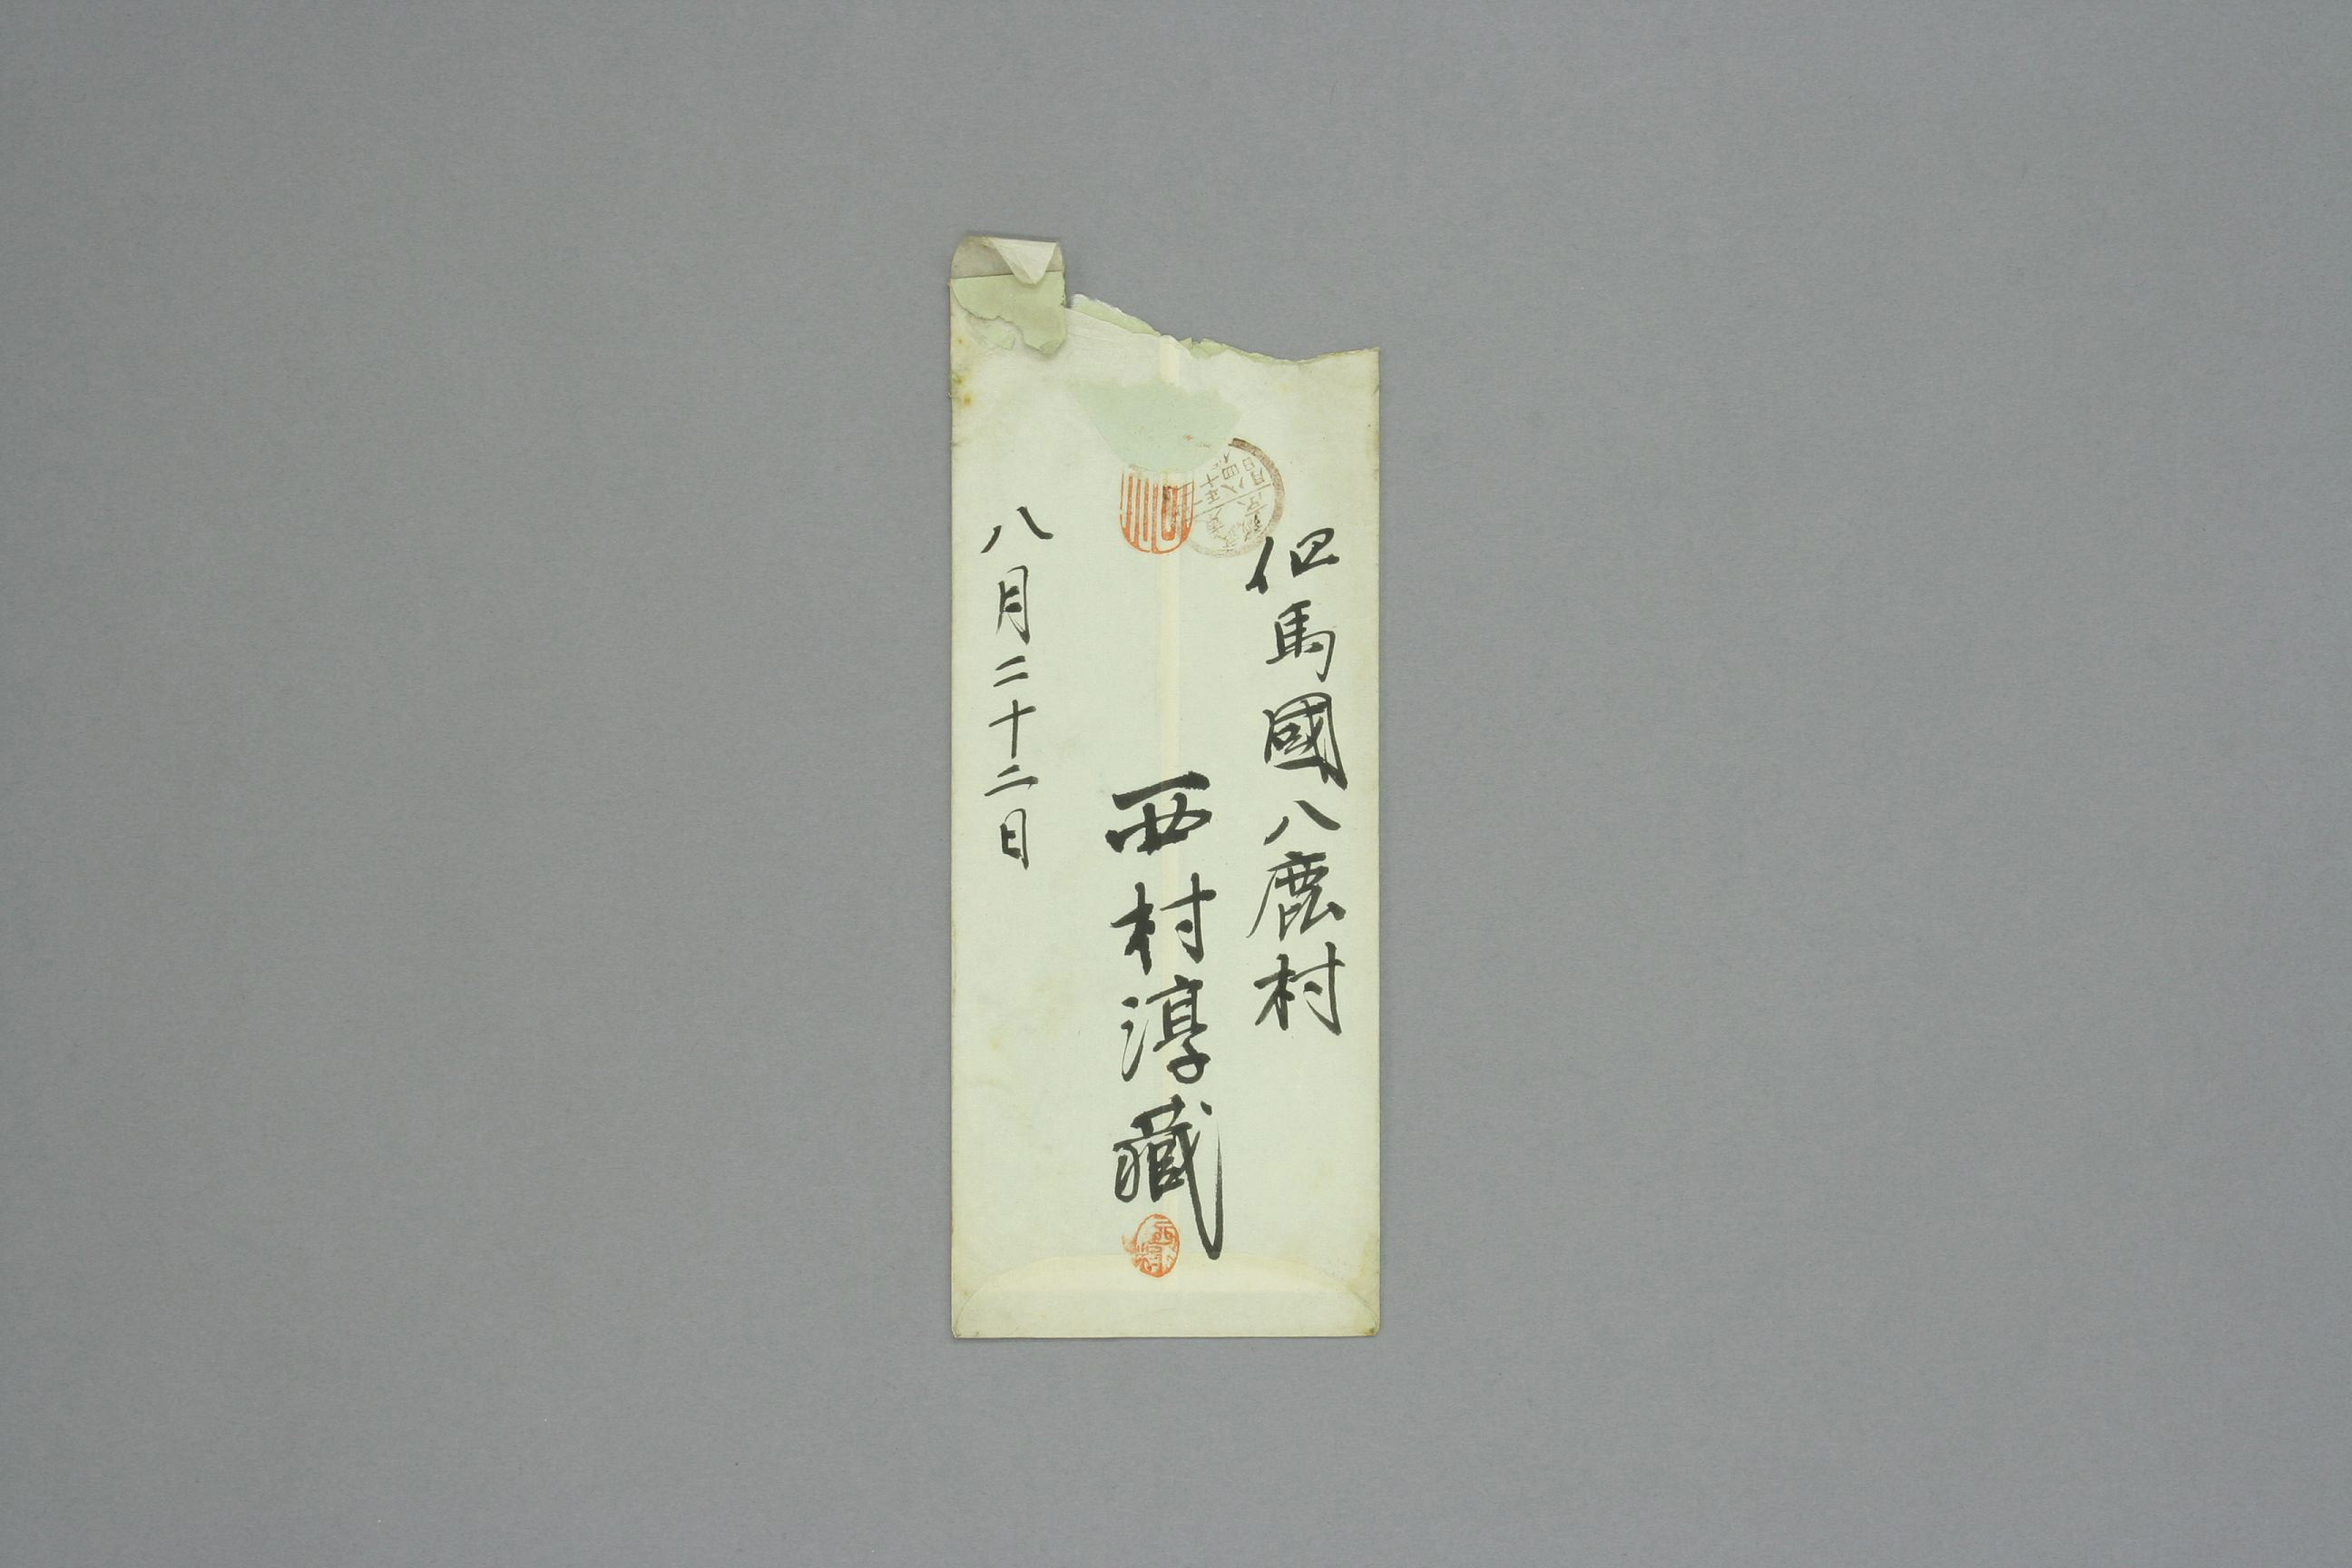 但馬國八鹿村
西村淳蔵
八月二十二日